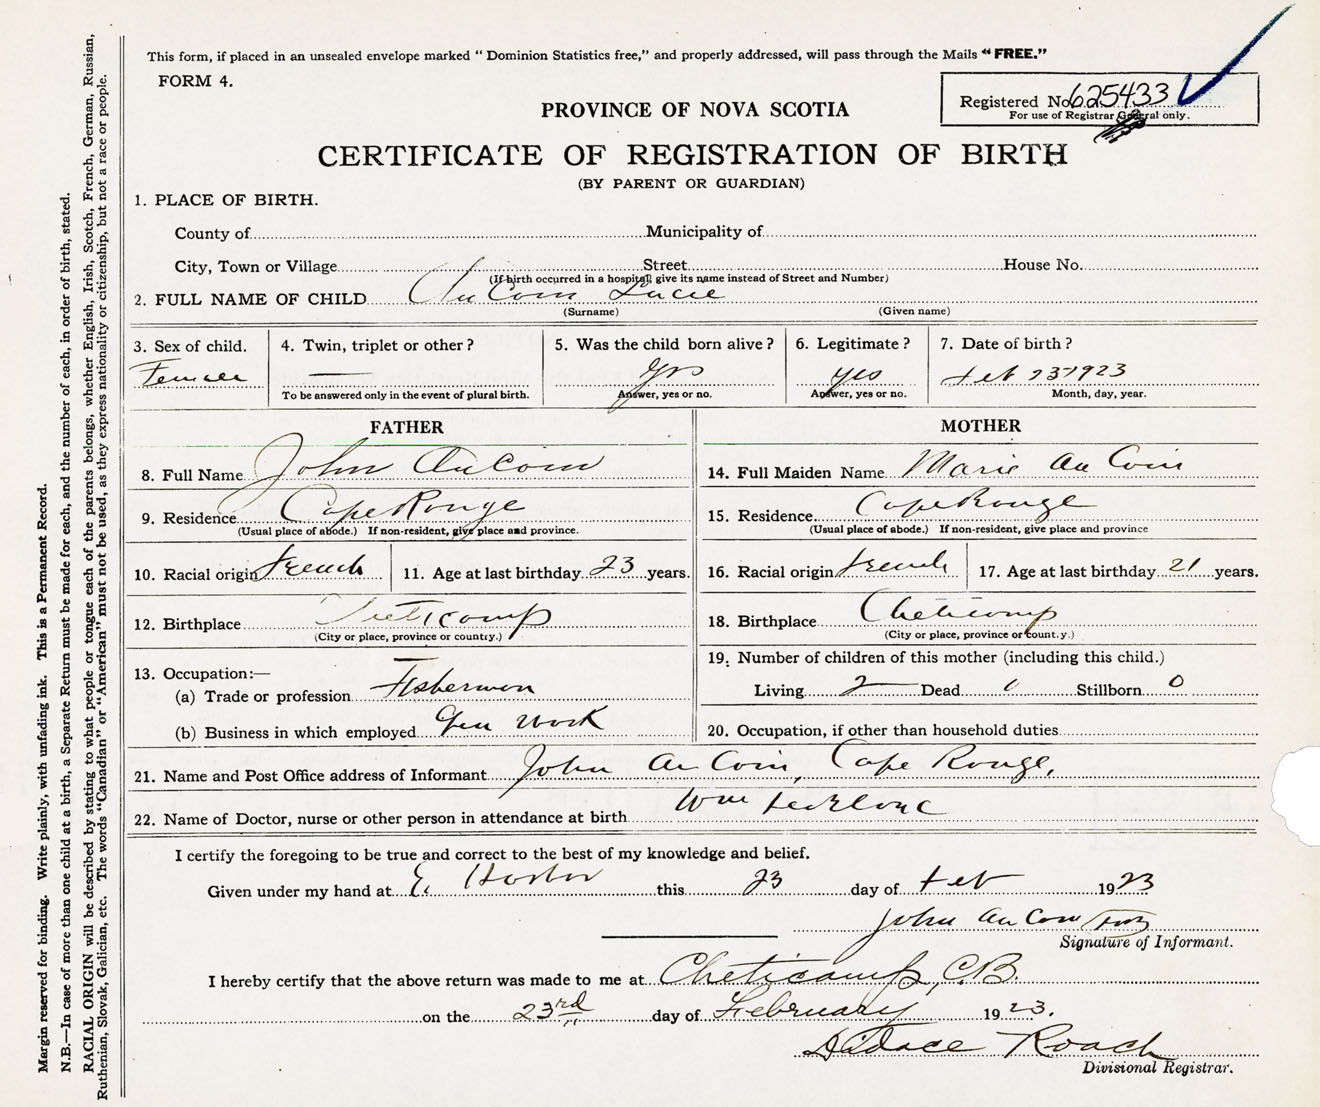 This form, if placed in an unsealed envelope marked “ Dominion Statistics free,” and properly addressed, will pass through the Mails “ FREE.”
FORM 4.
Registered No. 625433
For use of Registrar General only.
PROVINCE OF NOVA SCOTIA
CERTIFICATE OF REGISTRATION OF BIRTH
(BY PARENT OR GUARDIAN)
1. PLACE OF BIRTH.
County of Municipality of
City, Town or Village Street House No.
(If birth occurred in a hospital give its name instead of Street and Number)
2. FULL NAME OF CHILD AuCoin Lucie
(Surname) (Given name)
3. Sex of child. 4. Twin, triplet or other ? 5. Was the child born alive ? 6. Legitimate ? 7. Date of birth ?
Female — yes yes Feb 23 1923
To be answered only in the event of plural birth. Answer, yes or no. Answer, yes or no. Month, day, year.
FATHER
8. Full Name John AuCoin
9. Residence Cape Rouge
(Usual place of abode.) If non-resident, give place and province.
10. Racial origin French 11. Age at last birthday 23 years.
12. Birthplace Cheticamp
(City or place, province or country.)
13. Occupation:—
(a) Trade or profession Fisherman
(b) Business in which employed Gen Work
MOTHER
14. Full Maiden Name Marie Au Coin
15. Residence Cape Rouge
(Usual place of abode.) If non-resident, give place and province
16. Racial origin French 17. Age at last birthday 21 years.
18. Birthplace Cheticamp
(City or place, province or country.)
19. Number of children of this mother (including this child.)
Living 2 Dead 0 Stillborn 0
20. Occupation, if other than household duties
21. Name and Post Office address of Informant John Au Coin, Cape Rouge,
22. Name of Doctor, nurse or other person in attendance at birth Wm
I certify the foregoing to be true and correct to the best of my knowledge and belief.
Given under my hand at E. Harbor this 23 day of Feb 1923
John Au Coin
Signature of Informant.
I hereby certify that the above return was made to me at Cheticamp, C.B.
on the 23rd day of February 1923.
Roach
Divisional Registrar.
Margin reserved for binding. Write plainly, with unfading ink. This is a Permanent Record.
N.B.—In case of more than one child at a birth, a Separate Return must be made for each, and the number of each, in order of birth, stated.
RACIAL ORIGIN will be described by stating to what people or tongue each of the parents belongs, whether English, Irish, Scotch, French, German, Russian,
Ruthenian, Slovak, Galician, etc. The words “Canadian” or “American” must not be used, as they express nationality or citizenship, but not a race or people.